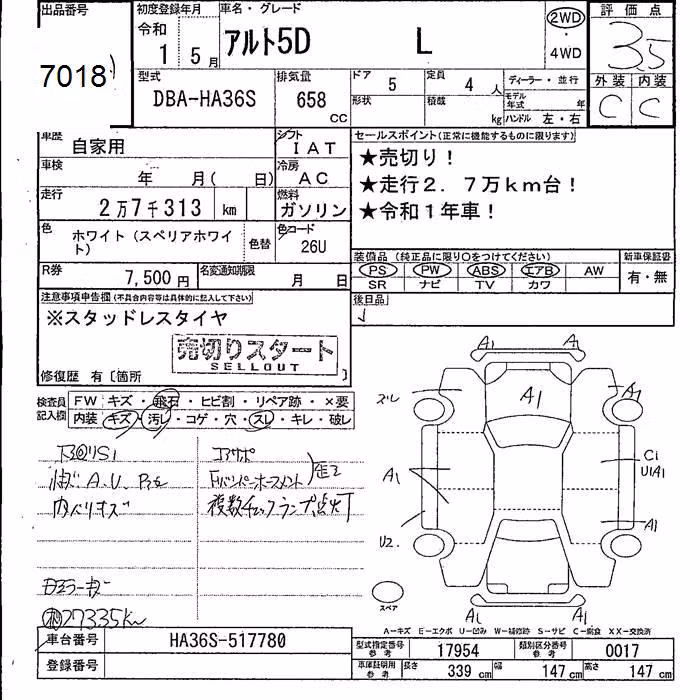 出品番号 初度登録年月 車名・グレード 評価点
7018 令和 1 5月 アルト5D L 2WD ・ 4WD 3.5
型式 排気量 ドア 5 定員 4人 ディーラー・並行 外装 内装
DBA-HA36S 658 CC 形状 積載 kg モデル年式 年 ハンドル 左・右 C C
車歴 自家用 シフト IAT セールスポイント(正常に機能するものに限ります)
車検 年 月( 日) 冷房 AC ★売切り!
走行 2万7千313 km 燃料 ガソリン ★走行2.7万km台!
★令和1年車!
色 ホワイト(スペリアホワイト) 色替 色コード 26U
装備品(純正品に限り〇をつけてください) 新車保証書
R券 7,500円 名変通知期限 月 日 PS PW ABS エアB AW 有・無
SR ナビ TV カワ
注意事項申告欄(不具合内容等は具体的に記入して下さい) 後日品
※スタッドレスタイヤ
売切りスタート
SELLOUT
修復歴 有〔箇所 〕
検査員記入欄 FW キズ・飛石・ヒビ割・リペア跡・×要
内装 キズ・汚レ・コゲ・穴・スレ・キレ・破レ
下回りS1 コアサポ
A.U.
複数チェックランプ点灯
27335km
A1 A1
A1
スレ A1
A1 C1
U1A1
U2. A1
スペア
A1 A1
A-キズ E-エクボ U-凹み W-補修跡 S-サビ C-腐食 XX-交換済
車台番号 HA36S-517780 型式指定番号 参考 17954 類別区分番号 参考 0017
登録番号 車庫証明用 参考 長さ 339 cm 幅 147 cm 高さ 147 cm